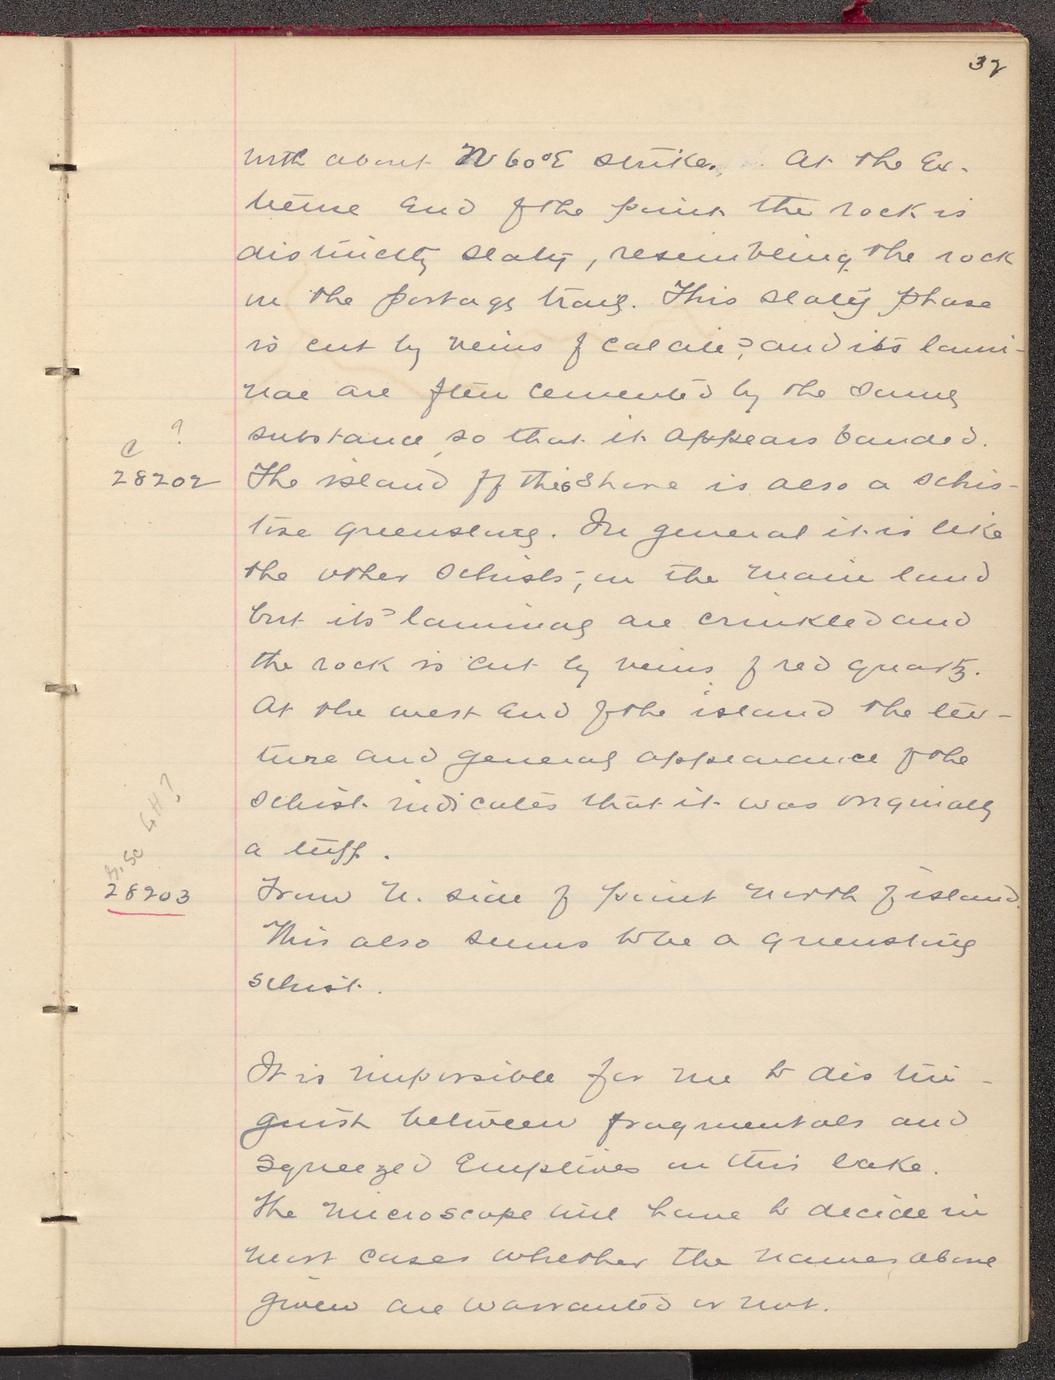 32
with about N 60° E strike. At the ex-
treme end of the point the rock is
distinctly slaty, resembling the rock
on the portage trail. This slaty phase
is cut by veins of calcite, and its lami-
nae are often cemented by the same
substance, so that it appears banded.
C ?
28202 The island off this shore is also a schis-
tose greenstone. In general it is like
the other schists, on the main land
but its laminae are crinkled and
the rock is cut by veins of red quartz.
At the west end of the island the tex-
ture and general appearance of the
schist indicates that it was originally
a tuff.
28203 From N. side of point north of island.
This also seems to be a greenstone
schist.
It is impossible for me to distin-
guish between fragmentals and
squeezed eruptives on this lake.
The microscope will have to decide in
most cases whether the names above
given are warranted or not.